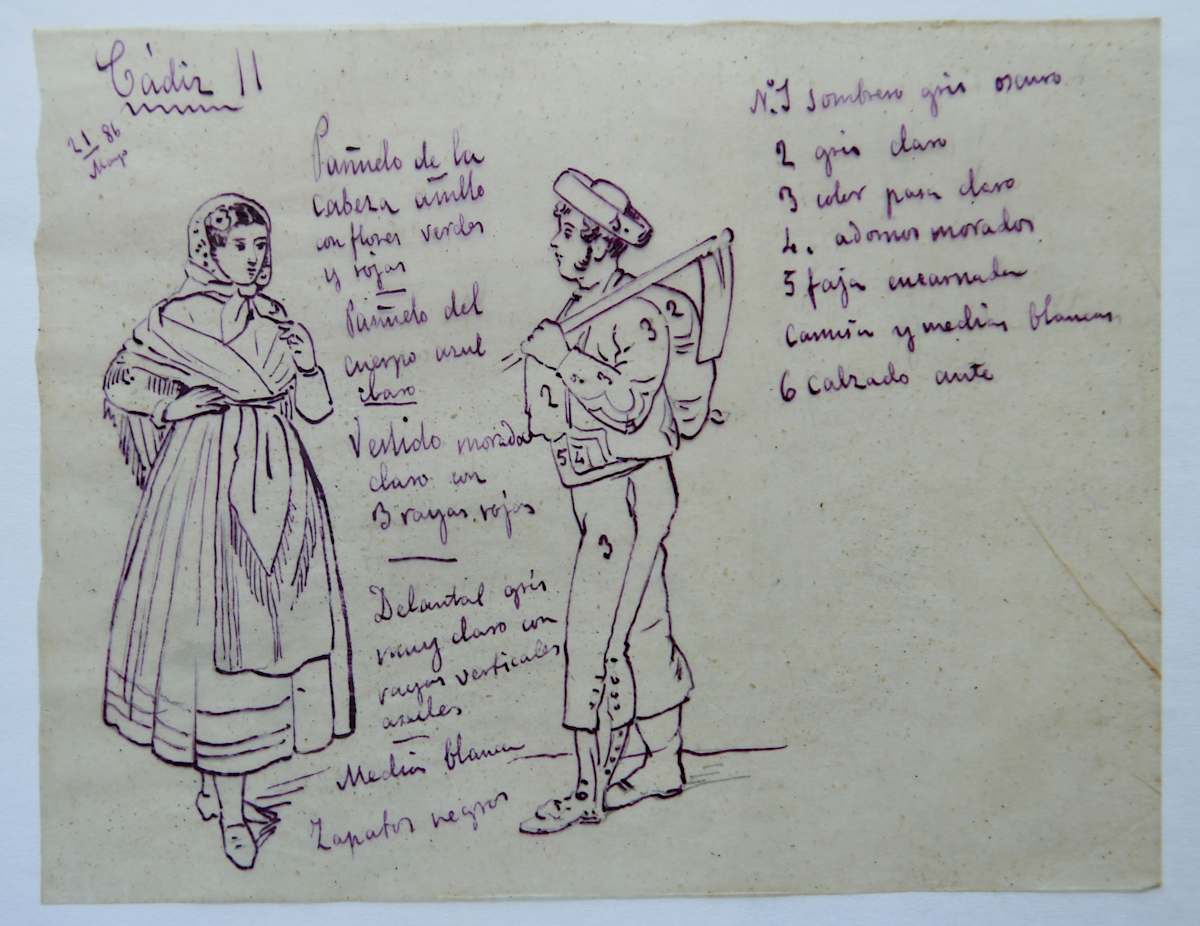 Cádiz 11
21 86
Mayo
Pañuelo de la
cabeza
con flores verdes
y rojas
Pañuelo del
cuerpo azul
claro
Vestido morado
claro con
3 rayas rojas
Delantal gris
muy claro con
rayas verticales
azules
Medias blancas
Zapatos negros
Nº 1 Sombrero gris oscuro
2 gris claro
3 color pasa claro
4. adornos morados
5 faja encarnada
Camisa y medias blancas
6 Calzado ante
2
3
3
2
5 4
3
6